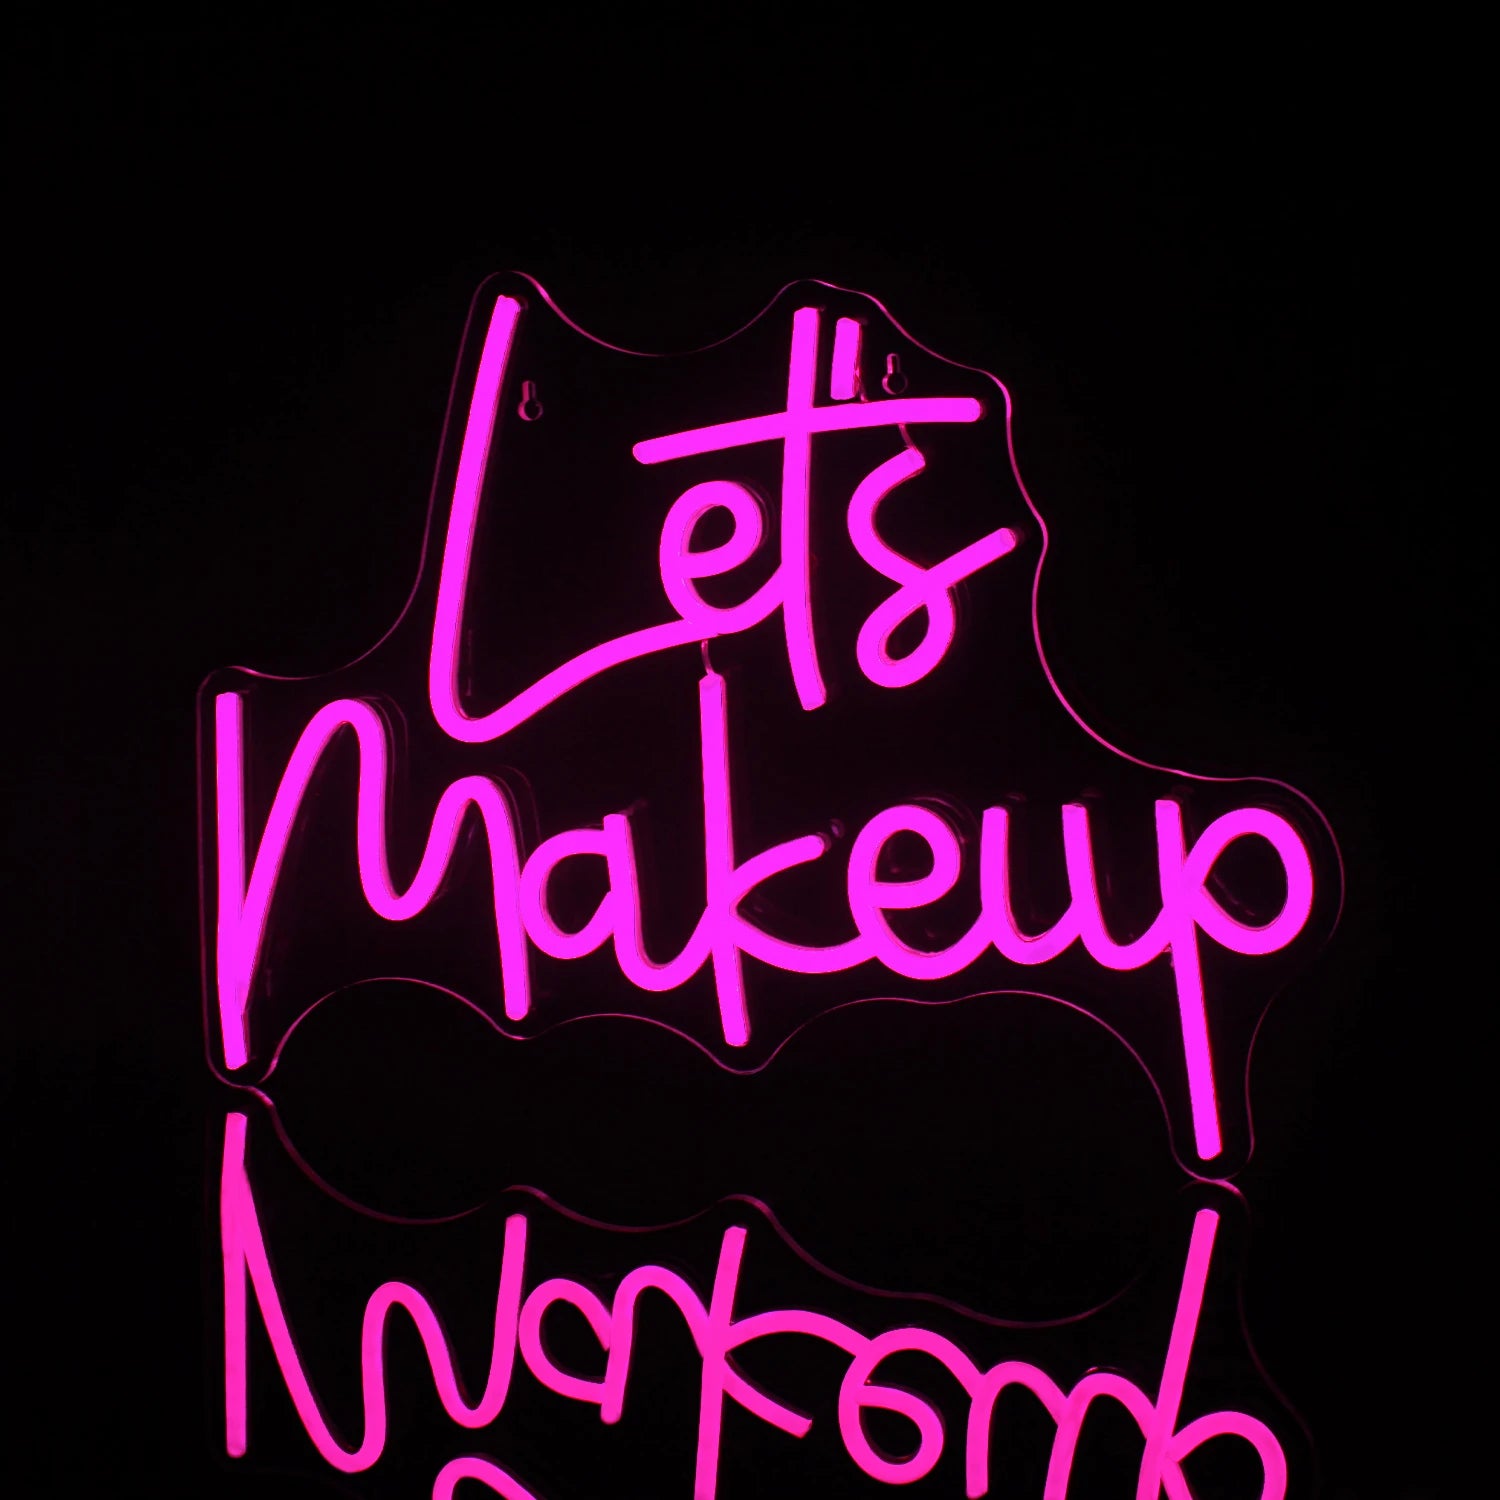 Let's
Makeup